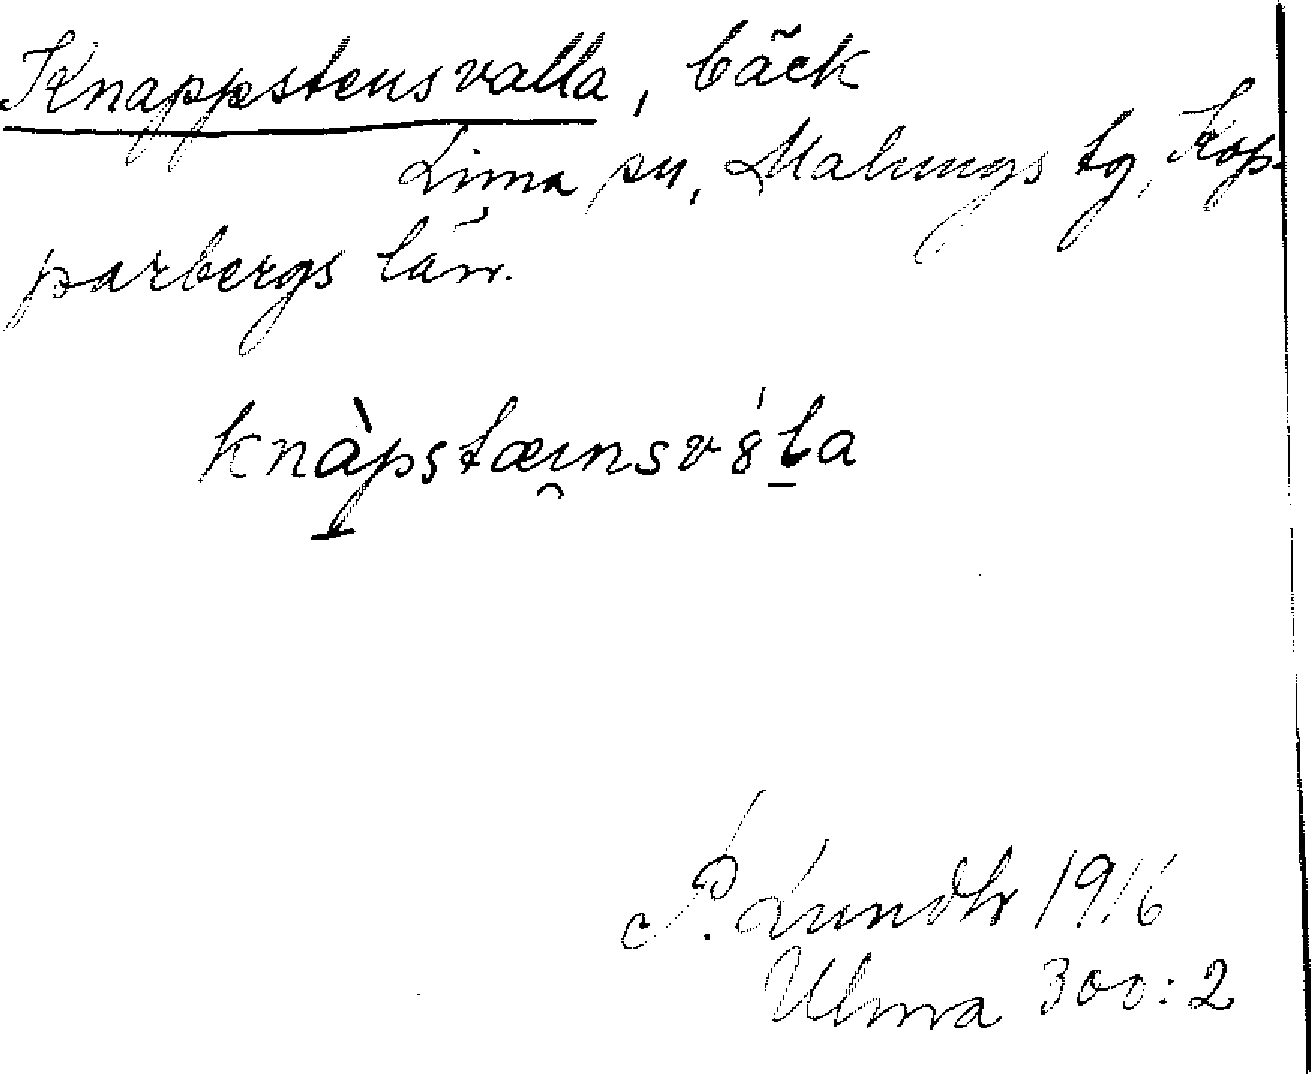 Knappstensvalla, bäck
Lima sn, Malungs tg, Kop-
parbergs län.
knàpstæınsv8́ła
P. Lundbr 1916
Ulma 300:2